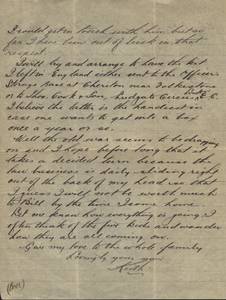 I could get in touch with him but so
far I have been out of luck in that
respect.
I will try and arrange to have the kit
I left in England either sent to the Officers
Stores Base at Cheriton near Folkestone
or to Cox & Co. Ludgate Circus E.C.
I believe the latter is the handiest in
case one wants to get into a box
once a year or so.
Well the old war seems to be dragging
on and I hope before long that it
takes a decided turn because the
law business is daily sliding right
out of the back of my head so that
I guess I will not be worth much
to Bill by the time I come home.
Let me know how everything is going I
often think of the five kids and wonder
how they are all coming on.
Give my love to the whole family
Lovingly your son
Keith
(over)